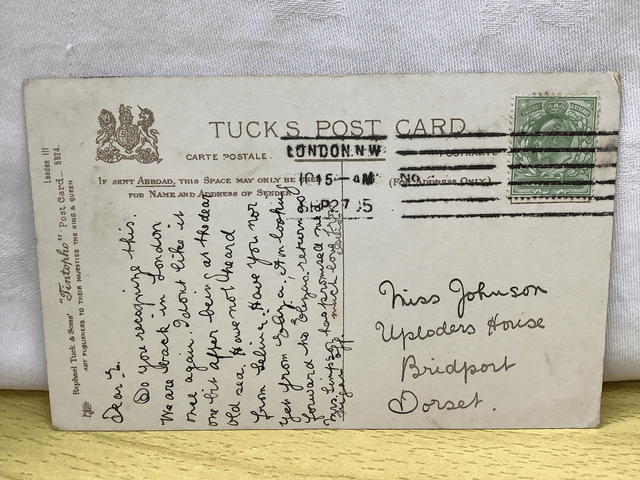 TUCK'S POST CARD
CARTE POSTALE.
POSTKARTE
IF SENT ABROAD, THIS SPACE MAY ONLY BE USED
FOR NAME AND ADDRESS OF SENDER.
(FOR ADDRESS ONLY.)
LONDON. N.W
SP 27 05
Raphael Tuck & Sons' "Tintopho" Post Card
London III
5924.
ART PUBLISHERS TO THEIR MAJESTIES THE KING & QUEEN
Dear
Do you recognize this.
We are back in London
once again. I dont like it
one bit after being at the dear
old sea. Have not heard
from Selina. Have you not
yet from Eliza. Am looking
forward to Elizas return as
Mrs. has promised me
much love
Miss Johnson
Uploders House
Bridport
Dorset.